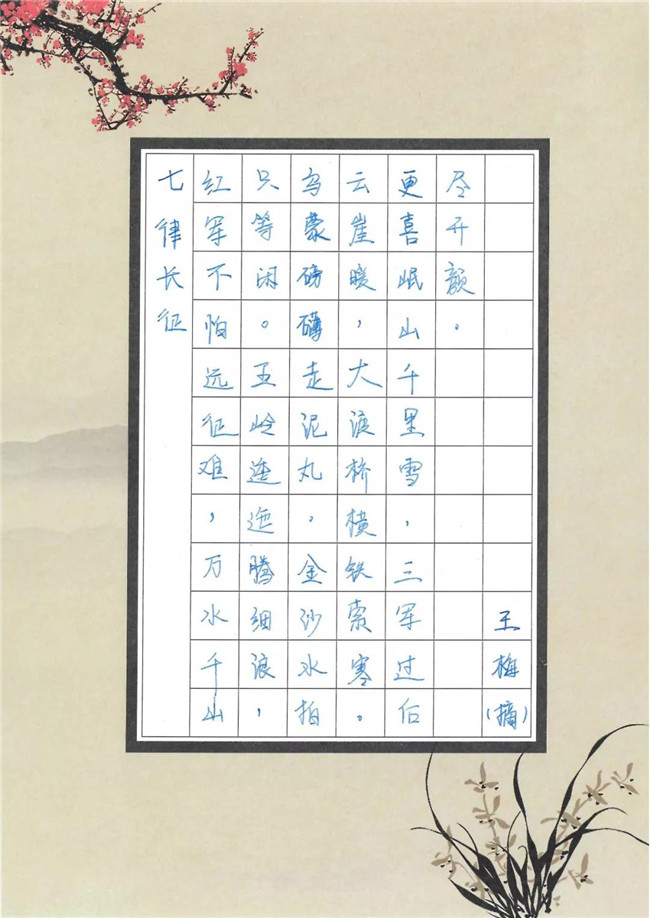 七律长征
红军不怕远征难，万水千山
只等闲。五岭逶迤腾细浪，
乌蒙磅礴走泥丸。金沙水拍
云崖暖，大渡桥横铁索寒。
更喜岷山千里雪，三军过后
尽开颜。
王梅（摘）